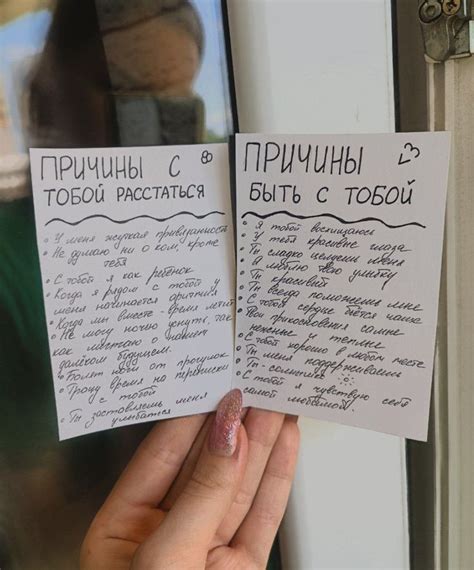 ПРИЧИНЫ С
ТОБОЙ РАССТАТЬСЯ
• У меня жуткая привязанность
• Не думаю ни о ком, кроме
тебя
• С тобой я как ребёнок
• Когда я рядом с тобой у
меня начинается аритмия
• Когда мы вместе - время летит
• Не могу ночью уснуть, так
как мечтаю о нашем
далёком будущем.
• Болят ноги от прогулок
• Трачу время на переписки
с тобой
• Ты заставляешь меня
улыбаться
ПРИЧИНЫ
БЫТЬ С ТОБОЙ
• Я тобой восхищаюсь
• У тебя красивые глаза
• Ты сладко целуешь меня
• Я люблю твою улыбку
• Ты красивый
• Ты всегда поможешь мне
• С тобой сердце бьётся чаще
• Твои прикосновения самые
нежные и теплые
• С тобой хорошо в любом месте
• Ты меня поддерживаешь
• Ты - солнышко
• С тобой я чувствую себя
самой любимой.